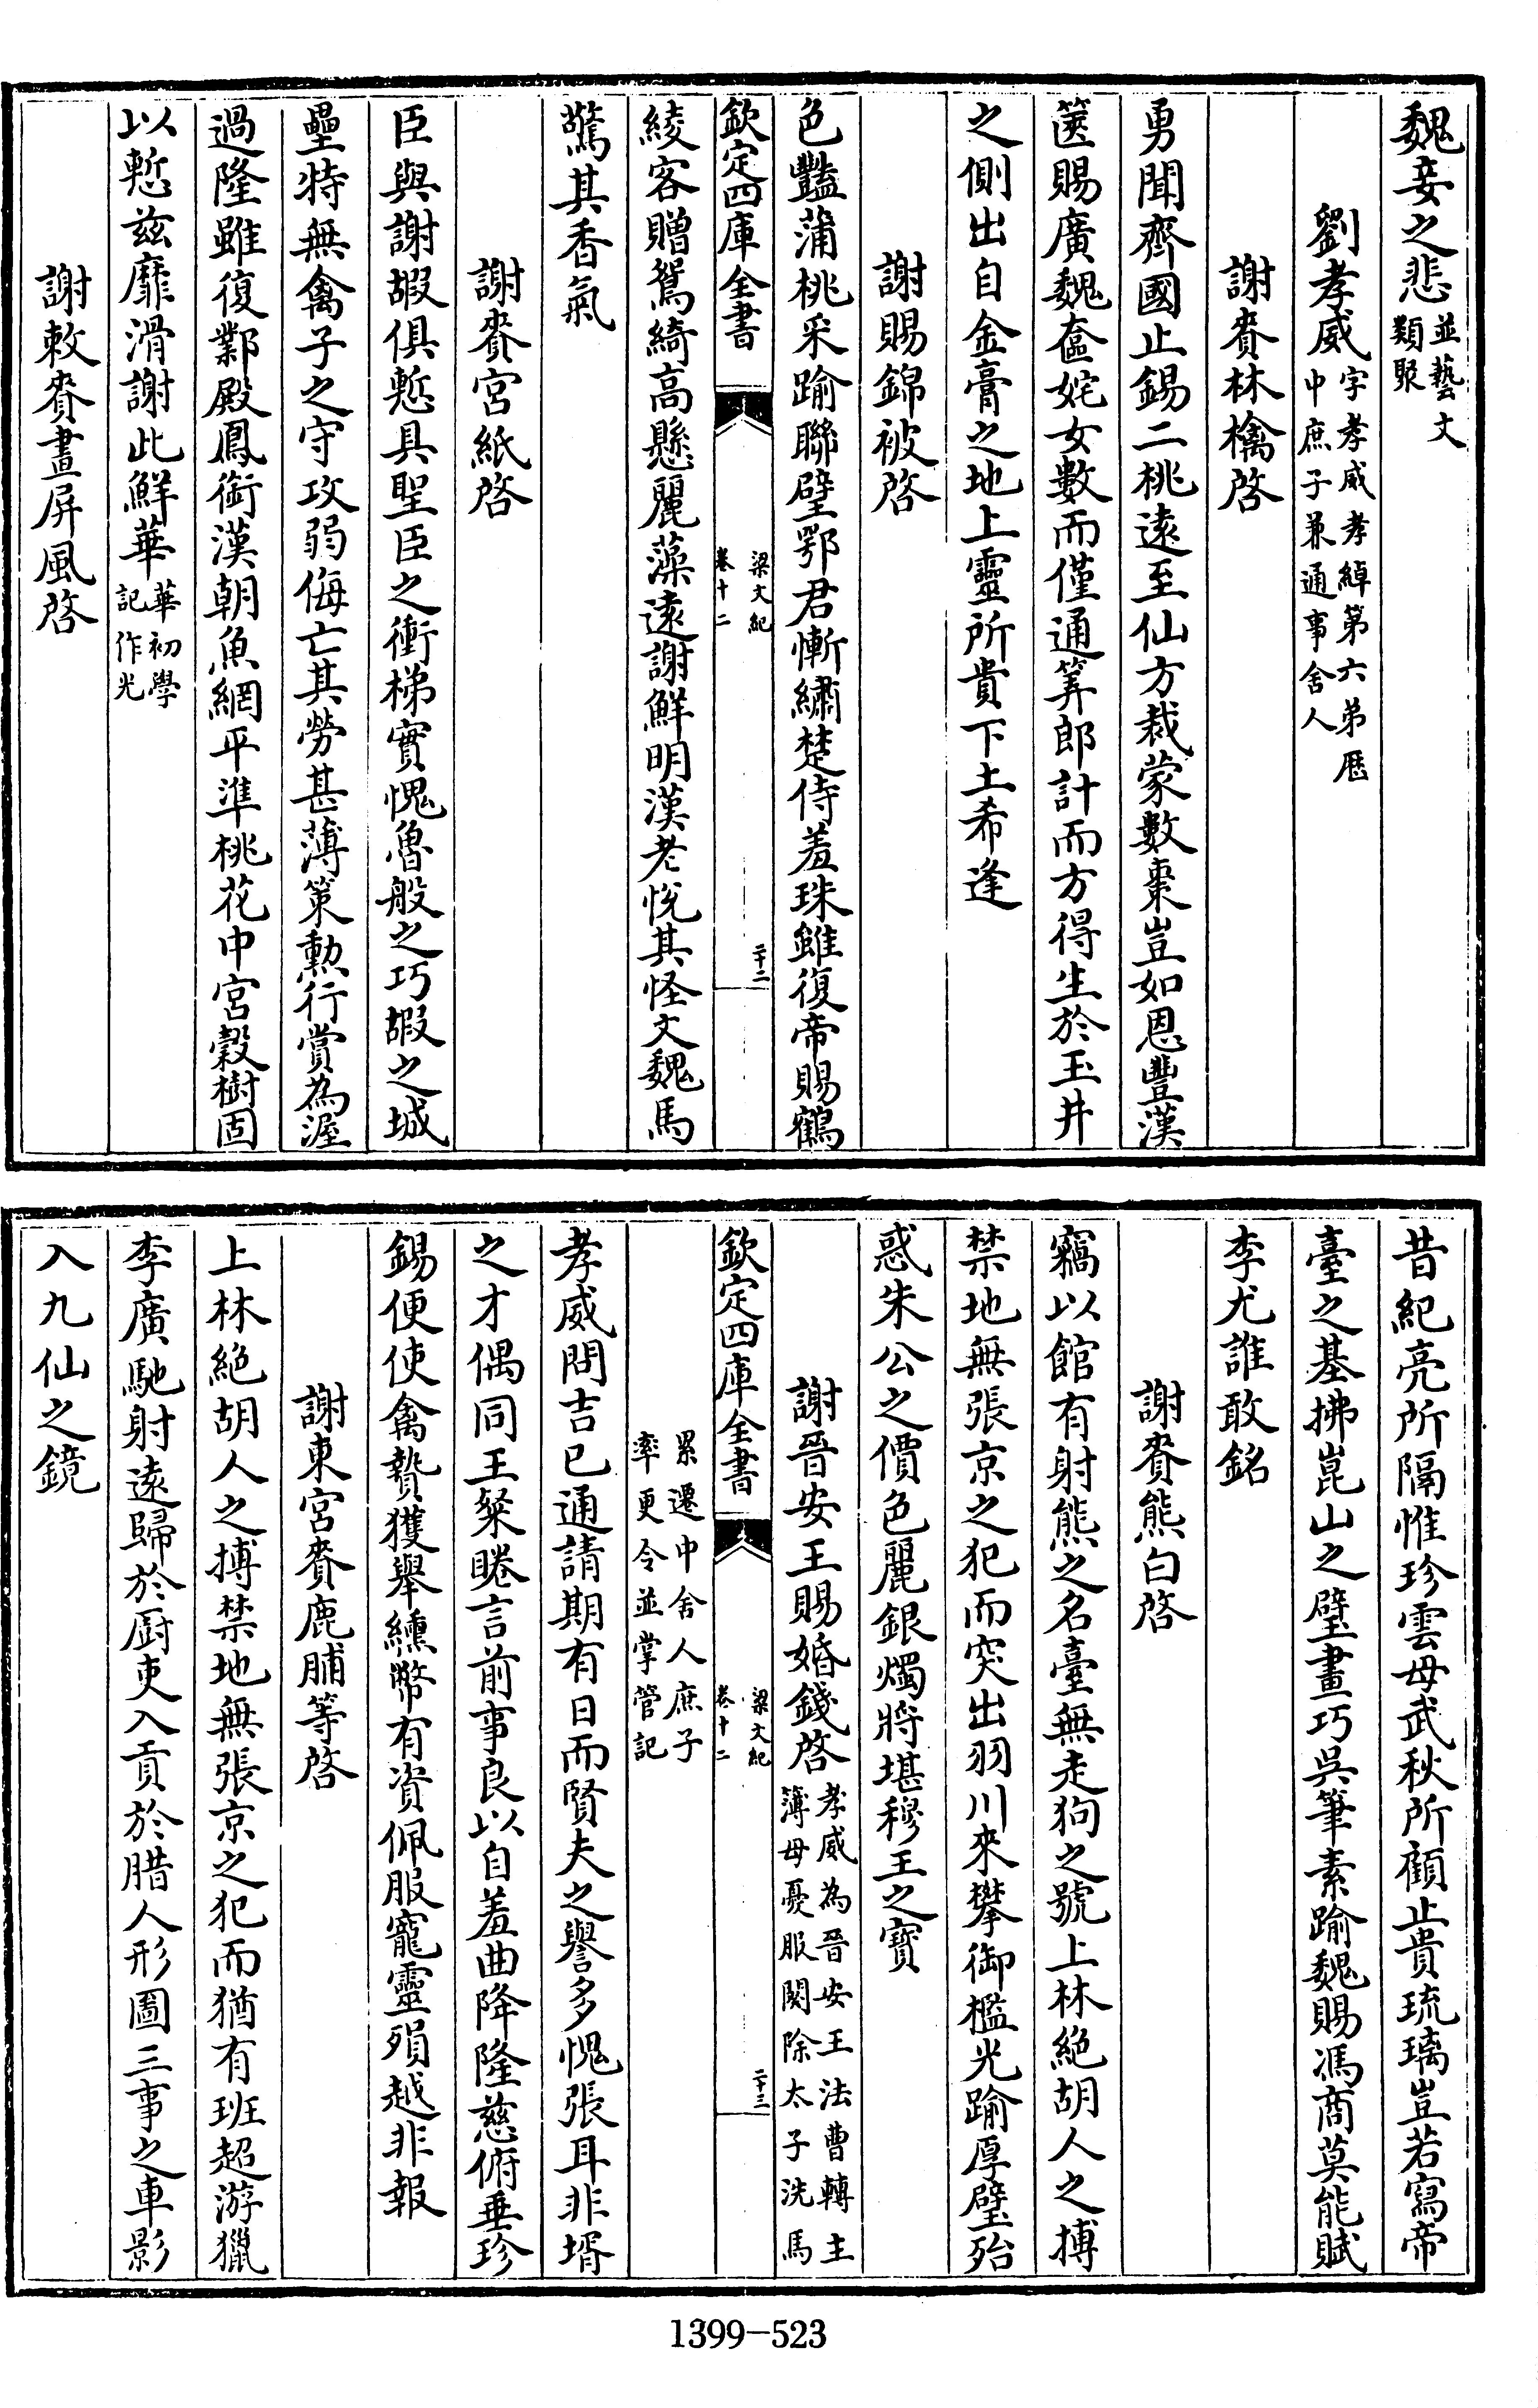 魏妾之悲並藝文類聚
劉孝威字孝威孝綽第六弟歷中庶子兼通事舍人
謝賚林檎啓
勇聞齊國止錫二桃遠至仙方裁蒙數棗豈如恩豐漢
篋賜廣魏奩姹女數而僅通筭郎計而方得生於玉井
之側出自金膏之地上靈所貴下土希逢
謝賜錦被啓
色豔蒲桃采踰聯璧鄂君慚繡楚侍羞珠雖復帝賜鶴
欽定四庫全書
梁文紀
卷十二
二十二
綾客贈鴛綺高懸麗藻遠謝鮮明漢老悅其怪文魏馬
驚其香氣
謝賚宮紙啓
臣與謝嘏俱慙具聖臣之衝梯實愧魯般之巧嘏之城
壘特無禽子之守攻弱侮亡其勞甚薄策勳行賞為渥
過隆雖復鄴殿鳳銜漢朝魚網平準桃花中宮穀樹固
以慙茲靡滑謝此鮮華華初學記作光
謝敕賚畫屏風啓
昔紀亮所隔惟珍雲母武秋所顧止貴琉璃豈若寫帝
臺之基拂崑山之璧畫巧吳筆素踰魏賜馮商莫能賦
李尤誰敢銘
謝賚熊白啓
竊以館有射熊之名臺無走狗之號上林絶胡人之搏
禁地無張京之犯而突出羽川來攀御檻光踰厚璧殆
惑朱公之價色麗銀燭將堪穆王之寶
謝晉安王賜婚錢啓孝威為晉安王法曹轉主簿母憂服闋除太子洗馬
欽定四庫全書
梁文紀
卷十二
二十三
累遷中舍人庶子率更令並掌管記
孝威問吉已通請期有日而賢夫之譽多愧張耳非壻
之才偶同王粲睠言前事良以自羞曲降隆慈俯垂珍
錫便使禽贄獲舉纁幣有資佩服寵靈殞越非報
謝東宮賚鹿脯等啓
上林絶胡人之搏禁地無張京之犯而猶有班超游獵
李廣馳射遠歸於厨吏入貢於腊人形圖三事之車影
入九仙之鏡
1399-523